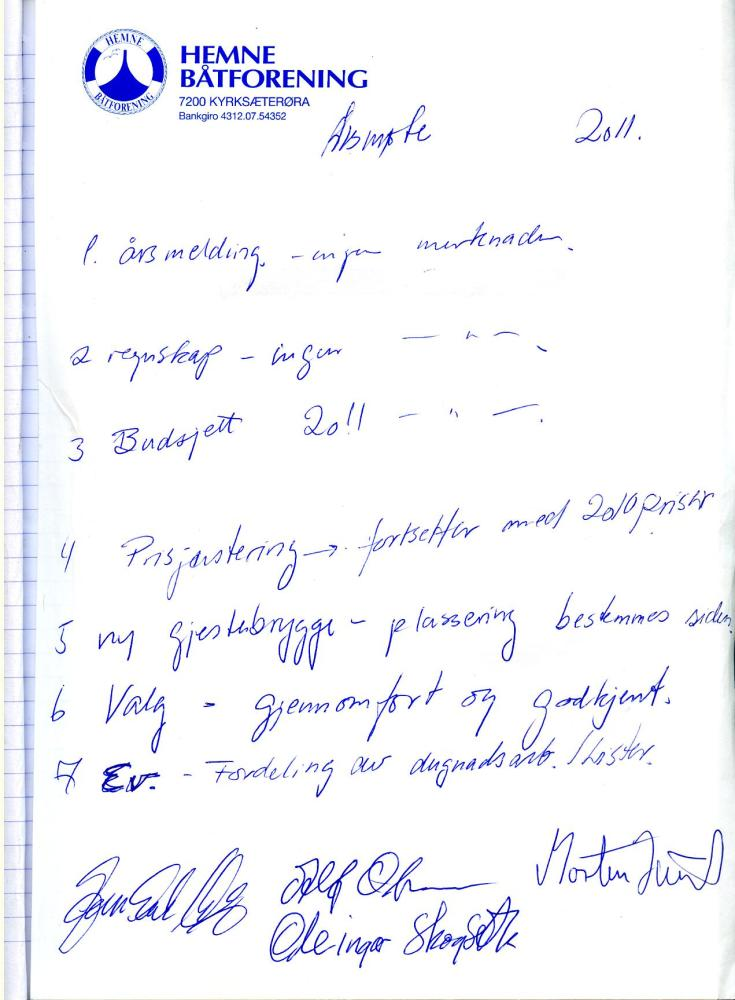 HEMNE
BÅTFORENING
HEMNE
BÅTFORENING
7200 KYRKSÆTERØRA
Bankgiro 4312.07.54352
Årsmøte 2011.
1. årsmelding. - ingen merknader.
2 regnskap - ingen — " —.
3 Budsjett 2011 — " —.
4 Prisjustering → fortsetter med 2010 priser
5 ny gjestebrygge - plassering bestemmes siden.
6 Valg - gjennomført og godkjent.
7 Ev. - Fordeling av dugnadsarb. / Lister.
Alf
Morten
Ole ingar